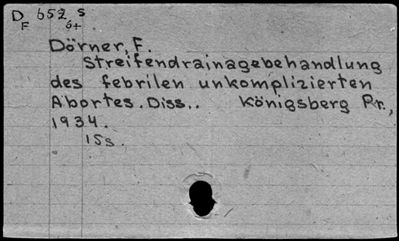 D 652 S
F 6+
Dörner, F.
Streifendrainagebehandlung
des febrilen unkomplizierten
Abortes. Diss.. Königsberg Pr.,
1934.
15s.